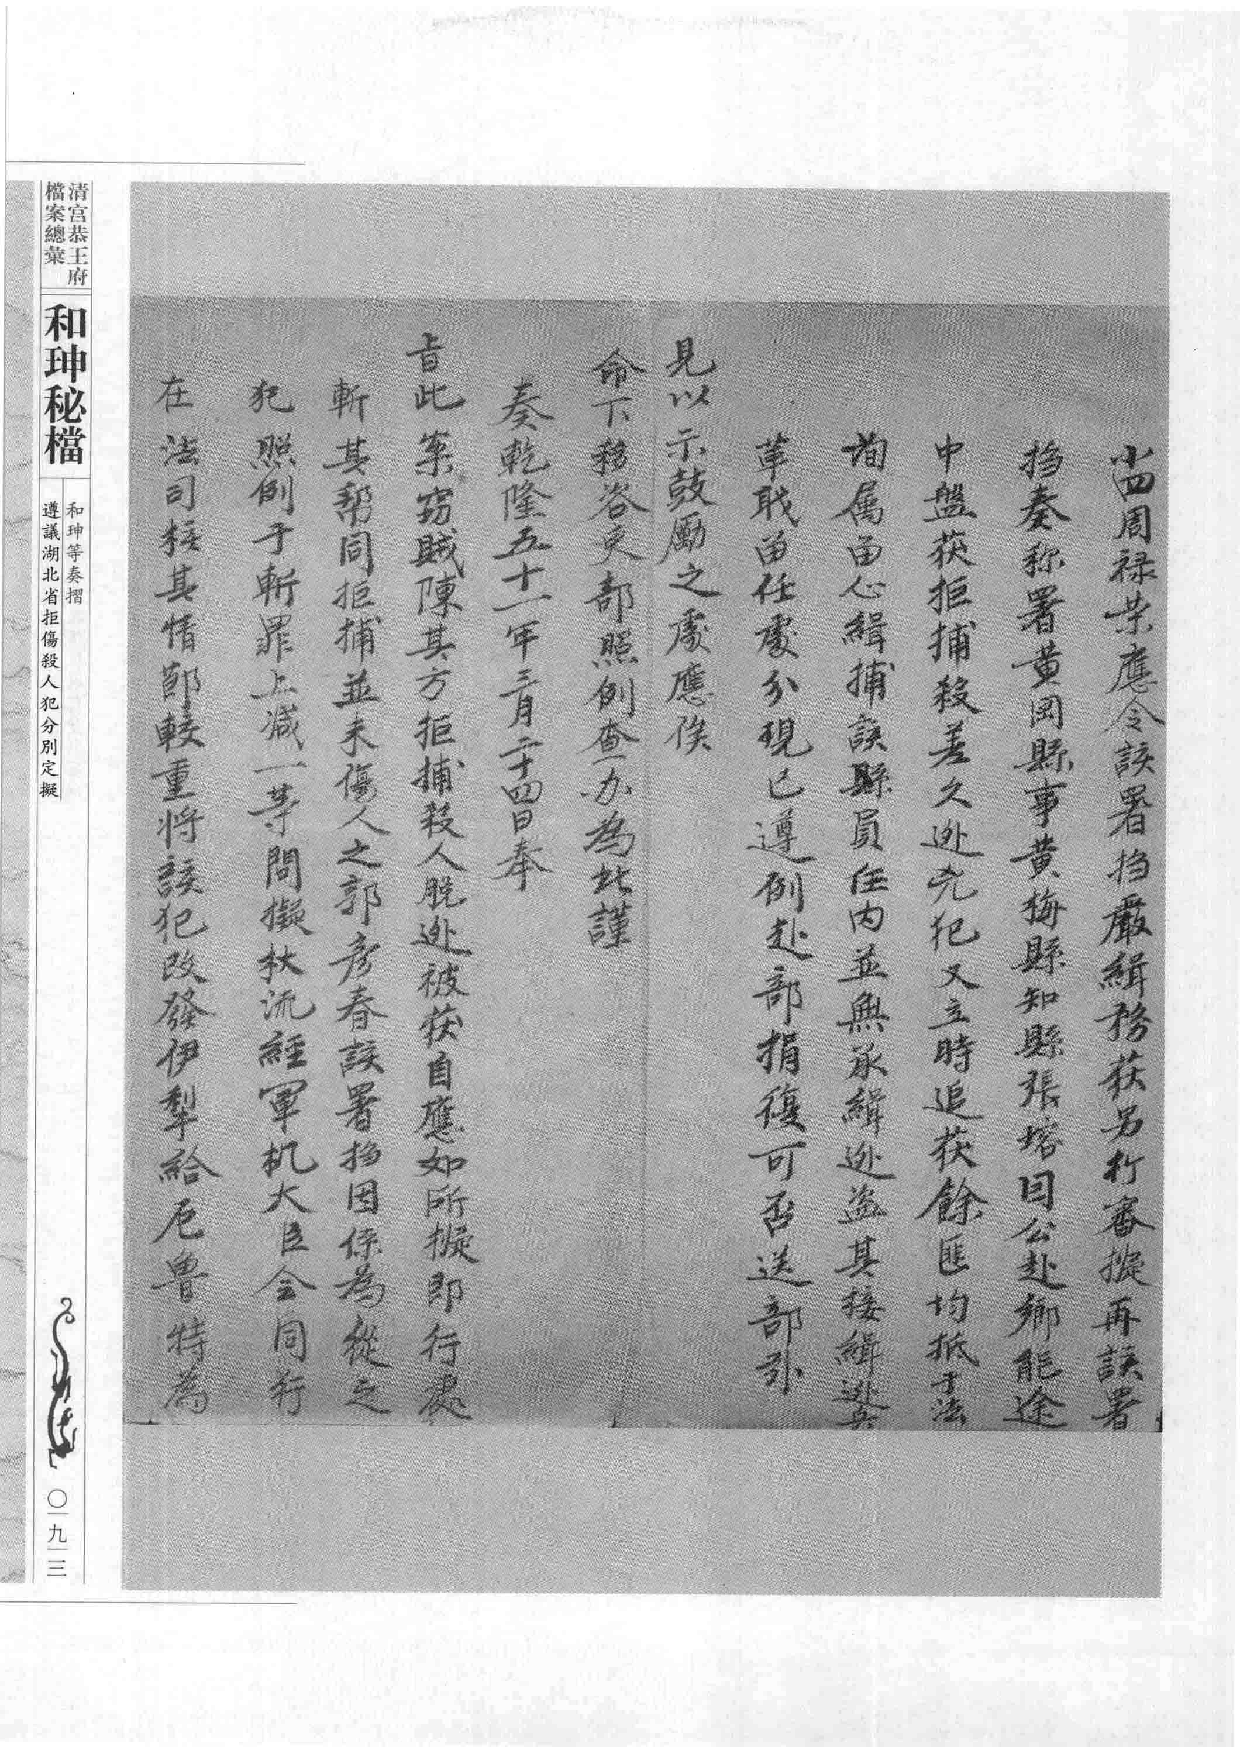 小四周禄荣應令該署撫嚴緝務获另行審擬再該署
撫奏称署黄岡縣事黄梅縣知縣張塎因公赴鄉能途
中盤获拒捕殺差久逊兇犯又立時追获餘匪均抵于法
洵属留心緝捕該縣員任内並無承緝逊盜其接緝逊兵
革职留任處分現已遵例赴部捐復可否送部引
見以示鼓勵之處應俟
命下移咨吏部照例查办為此謹
奏乾隆五十一年三月二十四日奉
旨此案窃賊陳其方拒捕殺人脱逊被获自應如所擬即行處
斬其帮同拒捕並未傷人之郭彦春該署撫因係為從之
犯照例于斬罪上減一等問擬杖流經軍机大臣会同行
在法司核其情節較重將該犯改發伊犁給厄魯特為
清宫恭王府
檔案總彙
和珅秘檔
和珅等奏摺
遵議湖北省拒傷殺人犯分別定擬
〇一九三